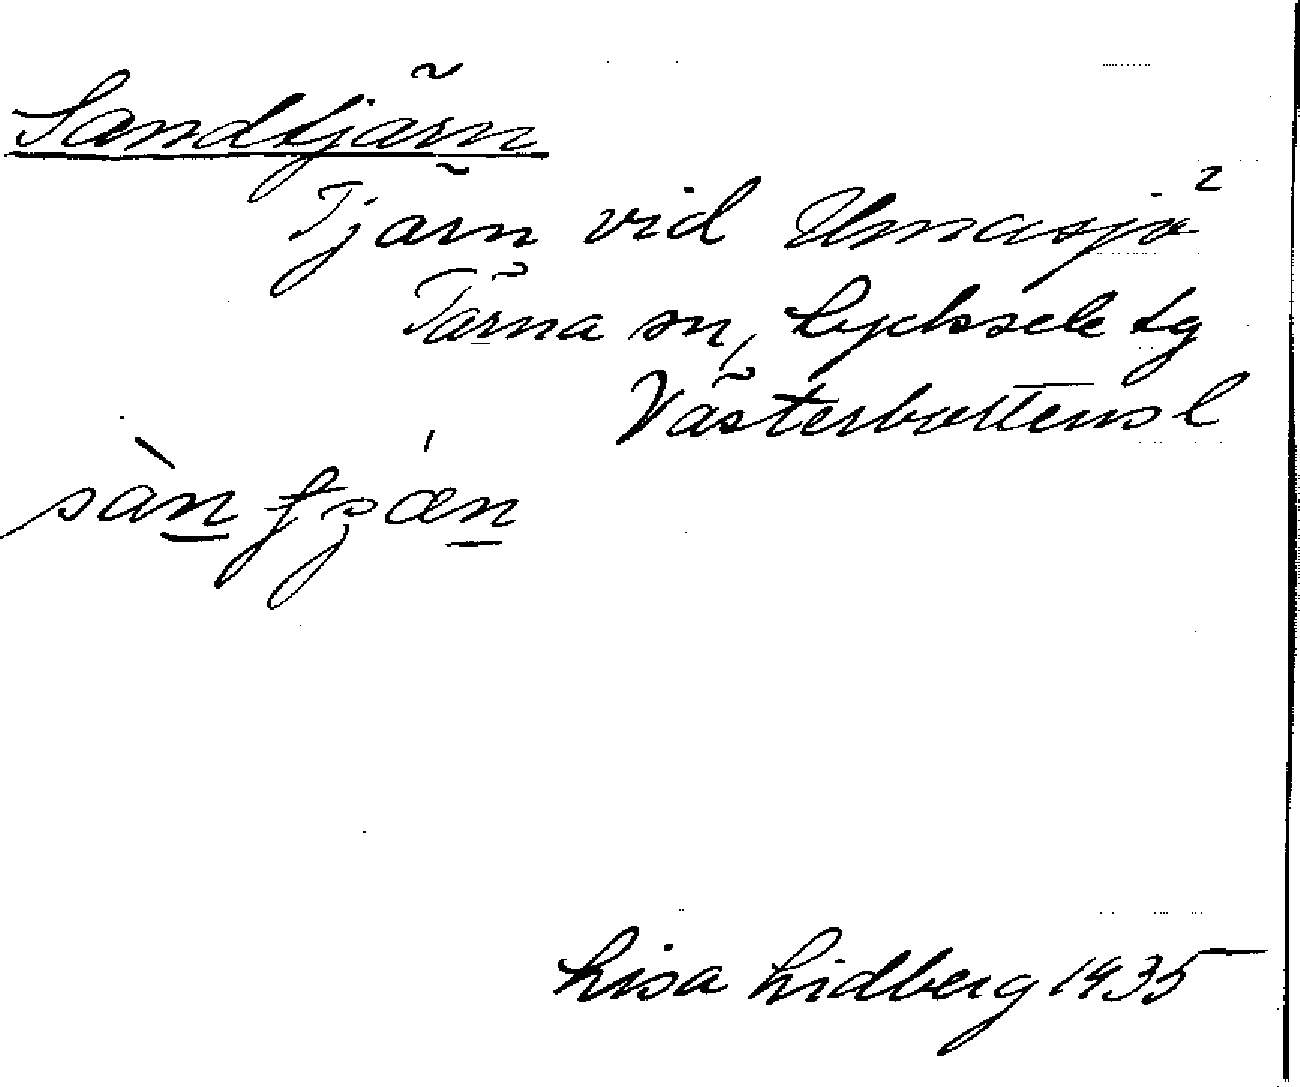 Sandtjärn
Tjärn vid Umasjö
Tärna sn, Lycksele tg
Västerbottens l
Lisa Lidberg 1935